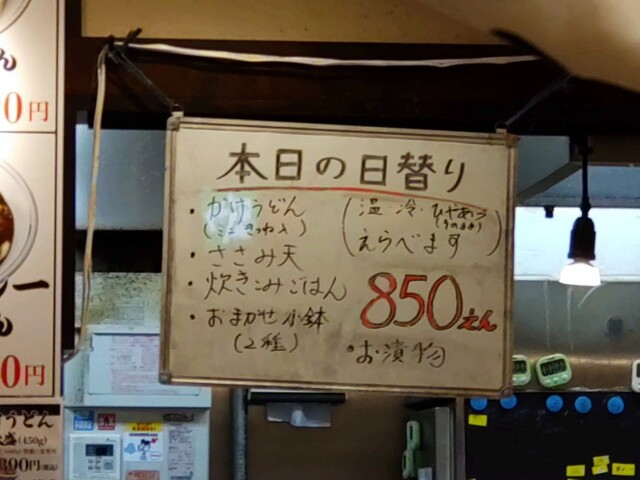 本日の日替り
・かけうどん
(ミニきつね入)
(温・冷・ひやあつ
えらべます)
・ささみ天
・炊きこみごはん
・おまかせ小鉢
(2種)
850えん
・お漬物
ん
0円
ー
ん
0円
うどん
大盛(450g)
390円(税込)